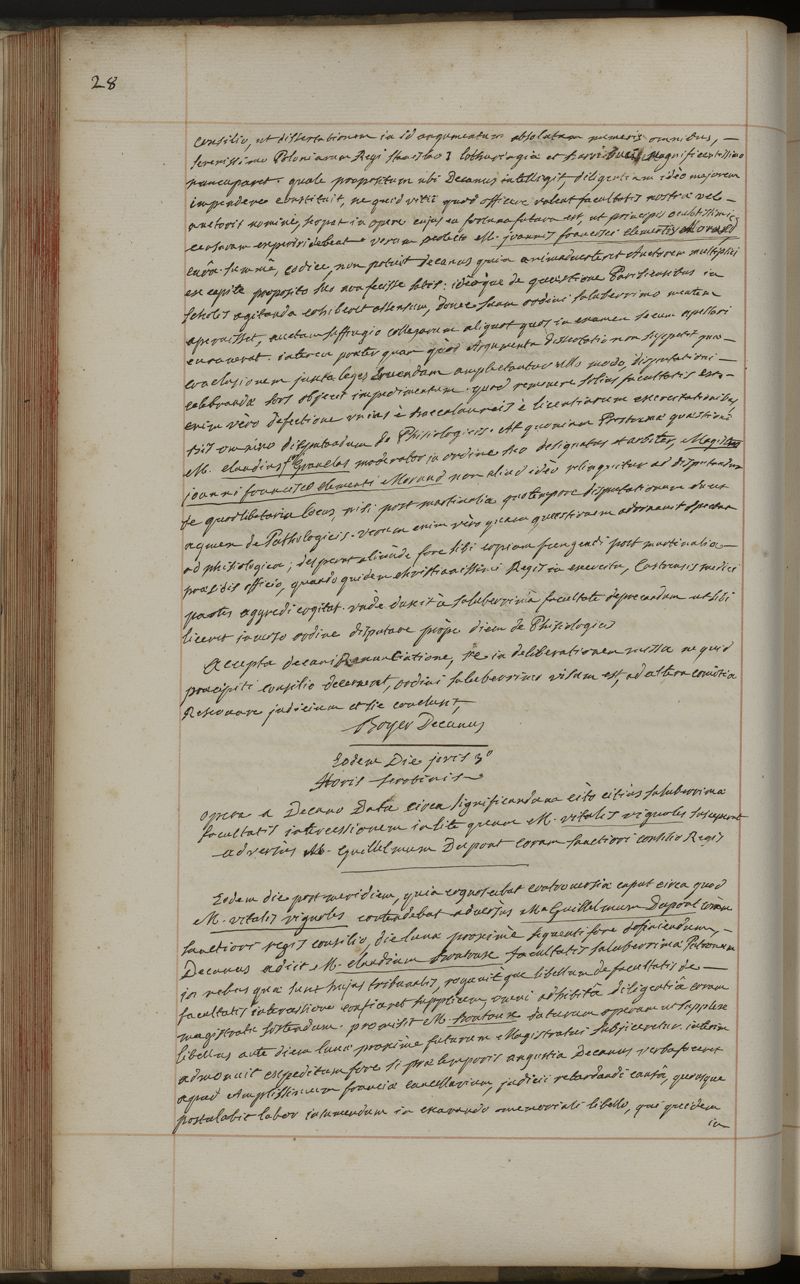 28
consilio, ut dissertationem in id argumentum absolutam numeris omnibus, —
serenissimo Poloniarum Regi Stanislao I lotharingiæ et Magnificentissimo
nuncuparet. quale propositum ubi Decanus intelligit, diligentiam ideo majorem
impendere constituit, ne quid vitii quod officere valeat facultatis nostræ vel —
auctoris nomini, in opere cujus ea fortuna futura est, ut principis
censuram experiri debeat. verum perlecto M. joannis francisci clementis Morand
summâ, codice, non potuit decanus quin animadverteret Auctorem multiplici
ex capite proposito suo non fecisse satis: ideoque de quæstione Parisiensibus in
scholis agitanda cohiberet assensum, donec suam ordini saluberrimo mentem
aperuisset, suffragio collegarum aliquot quos in examen secum
curaverat. interea præterquam quod Argumenta dissertatio non suppetit quæ
conclusionem juxta leges tuendam amplectantur ullo modo, disputationi —
celebrandæ sors objecit impedimentum. quod removere solius facultatis est. —
enim vero defectione unius è baccalaureis è licentiarum exercitationibus
sit omnino disputandum de Phisiologicis. At quoniam Postrema quæstioni
M. claudius Granclas moderator in ordine suo designatus et arbiter, Magistro
joanni francisco clementi Morand non aliud ideo relinquitur ad disputandum
de quodlibetaria locus, nisi post martinalia quo tempore disputationum ducet
agmen de Pathologicis. verum enim vero quam quæstionem adornavit spectat
ad phisiologica; desperat aliunde fore sibi copiam fungendi post martinalia —
præsidis officio, quando quidem christianissimi Regis in exercitu, Castrensis medici
partes aggredi cogitat. unde duxit à saluberrimâ facultate deprecandum ut sibi
liceret inverso ordine disputare prope diem de Phisiologicis
Accepta decani Renunciatione, re in deliberationem missa ne quid
præcipiti consilio decerneret, ordini saluberrimo visum est, ad altera comitia
Reservare judicium et sic conclusit,
Boyer Decanus
Eodem Die jovis 3º
Horis serotinis
opera a Decano Data circa significandam cito citius saluberrimæ
facultatis intercessionem in lite quam M. vitalis vignoles susceperat
adversus M. Guillelmum Dupont coram sanctiori consilio Regis
Eodem die post meridiem, quia cognoscebat controversiæ caput circa quod
M. vitalis vignoles contendebat adversus M. Guillelmum Dupont coram
sanctiori regis consilio, die lunæ proxime sequenti fore definiendum, —
Decanus adiit M. claudium facultatis saluberrimæ Patronum
in rebus quæ sunt hujus tribunalis, rogavitque libellum de facultatis de —
facultatis intercessione conficeret supplicem, omni adhibitâ diligentiâ coram
magistratu sistendum. promisit M. daturum operam ut supplex
libellus ante diem lunæ proxime futuram Magistratui subjiceretur. interim
admonuit expeditum fore si præ temporis angustia Decanus verba faceret
apud Amplissimum franciæ cancellarium, judicii retardandi causâ, quousque
postulabit labor insumendum in exarando memoriali libello, qui quidem
in